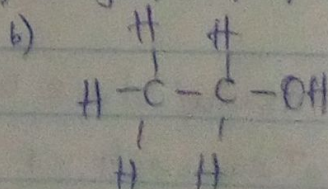 b)
H H
H - C - C - OH
H H